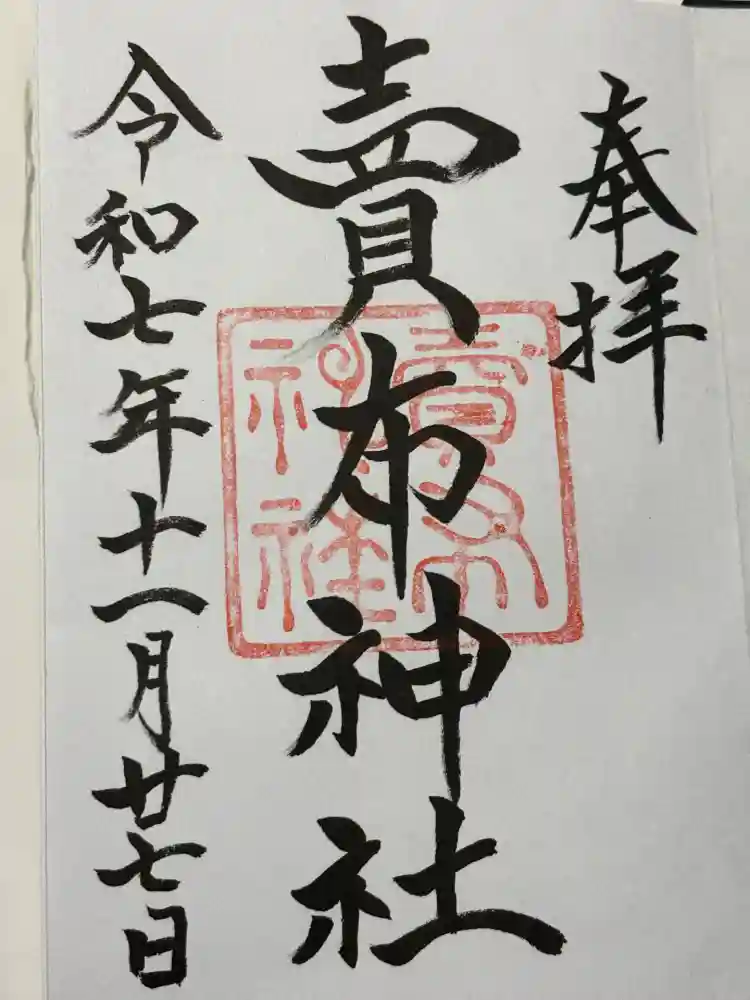 奉拝
賣布神社
賣布
神社
令和七年十一月廿七日